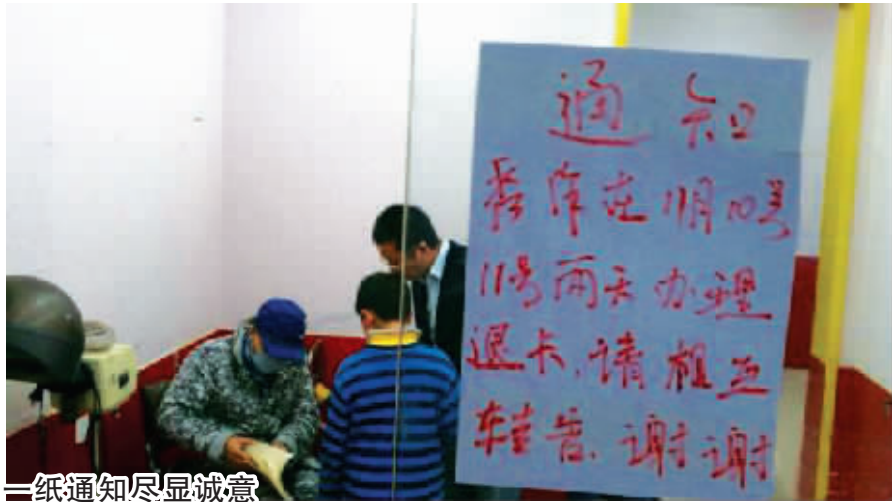 通知
在11月10号
11号两天办理
退卡,请相互
转告、谢谢
一纸通知尽显诚意